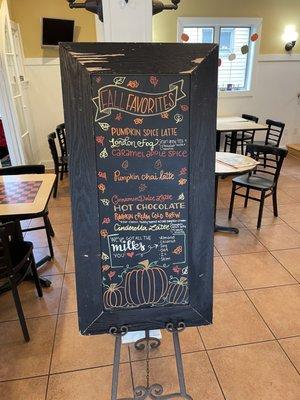 FALL FAVORITES
PUMPKIN SPICE LATTE
London Fog
CARAMEL APPLE SPICE
Pumpkin Chai Latte
Cinnamon Spice Latte
HOT CHOCOLATE
PUMPKIN CREAM COLD BREW
Cinderella Latte
WE'VE GOT ALL THE
milks
YOU ♥
Almond
Coconut
Oat
Soy
2%
Skim